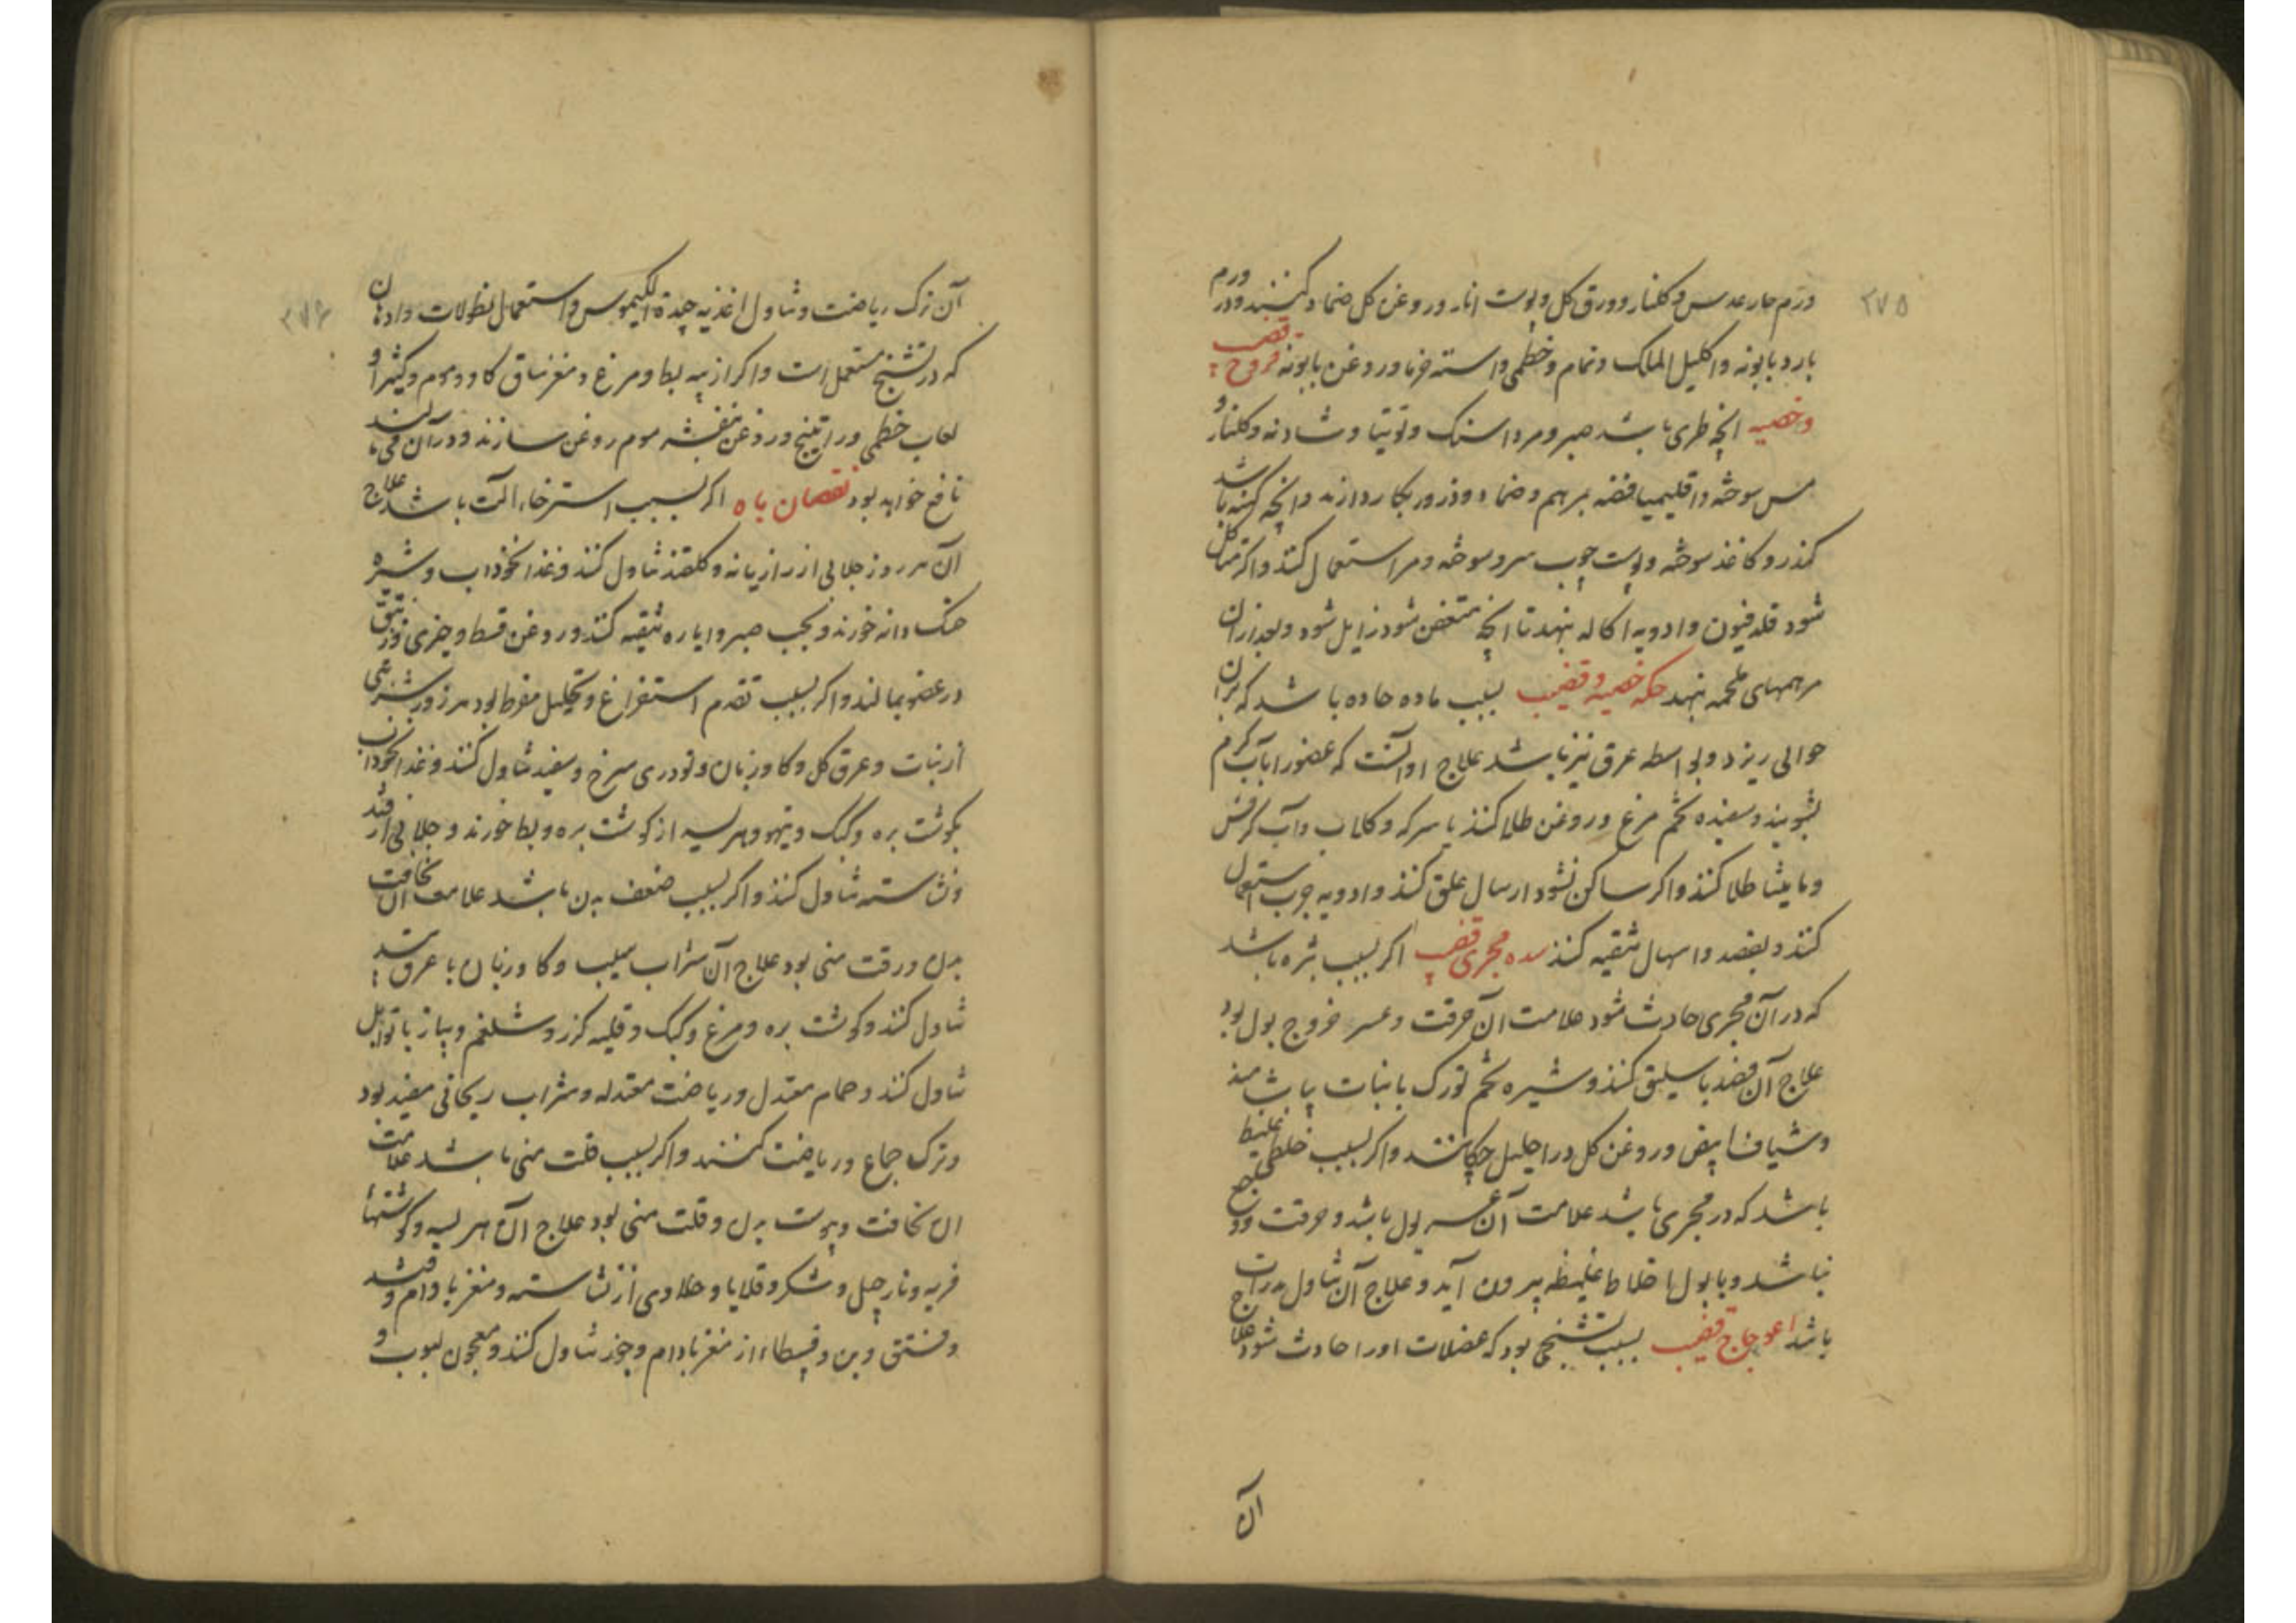 ۲۷۵
ورم حار عدس و کلنار و ورق کل و پوست انار و روغن کل ضماد کنند و در ورم
بارد بابونه و اکلیل الملک و نمام و خطمی و استه خرما و روغن بابونه قروح قضیب
و خصیه انچه طری باشد صبر و مرداسنک و توتیا و شادنه و کلنار و
مس سوخته و اقلیمیا فضه بمرهم و ضماد و ذرور بکار دارند و انچه کهنه باشد
کندر و کاغذ سوخته و پوست چوب سرو سوخته و مر استعمال کنند و اکر متاکل
شود قلدفیون و ادویه اکاله نهند تا انچه متعفن شود زایل شود و بعد از ان
مرهمهای ملحمه نهند حکه خصیه و قضیب بسبب ماده حاده باشد که بران
حوالی ریزد و بواسطه عرق نیز باشد علاج او آنست که عضو را بآب کرم
بشویند و سفیده تخم مرغ و روغن طلا کنند یا سرکه و کلاب و آب کرفس
و مامیثا طلا کنند و اکر ساکن نشود ارسال علق کنند و ادویه جرب استعمال
کنند و بفصد و اسهال تنقیه کنند سده مجری قضیب اکر بسبب بثره باشد
که در آن مجری حادث شود علامت ان حرقت و عسر خروج بول بود
علاج آن فصد باسلیق کنند و شیره تخم تورک با نبات بیاشامند
و شیاف ابیض و روغن کل در احلیل چکانند و اکر بسبب خلطی غلیظ
باشد که در مجری باشد علامت آن عسر بول باشد و حرقت و وجع
نباشد و با بول اخلاط غلیظه بیرون آید و علاج آن تناول مدرات
باشد اعوجاج قضیب بسبب تشنجی بود که عضلات او را حادث شود علاج
آن
۲۷۶
آن ترک ریاضت و تناول اغذیه جیدة الکیموس و استعمال نطولات و ادهان
که در تشنج مستعمل است و اکر از پیه بط و مرغ و مغز ساق کاو و موم و کثیرا و
لعاب خطمی و راتینج و روغن بنفشه موم روغن سازند و در آن می مالند
نافع خواهد بود نقصان باه اکر بسبب استرخاء الت باشد علاج
آن هر روز جلابی از رازیانه و کلقند تناول کنند و غذا نخوداب و شیره
خسک دانه خورند و بحب صبر و ایاره تنقیه کنند و روغن قسط و چیزی زنبق
در عضو بمالند و اکر بسبب تقدم استفراغ و تحلیل مفرط بود هر روز شربتی
از نبات و عرق کل و کاوزبان و تودری سرخ و سفید تناول کنند و غذا نخوداب
بکوشت بره و کبک و تیهو و هریسه از کوشت بره و بط خورند و جلابی از قند
و نشاسته تناول کنند و اکر بسبب ضعف بدن باشد علامت ان نحافت
بدن و رقت منی بود علاج آن شراب سیب و کاوزبان با عرق
تناول کنند و کوشت بره و مرغ و کبک و قلیه کزر و شلغم و پیاز با توابل
تناول کنند و حمام معتدل و ریاضت معتدله و شراب ریحانی مفید بود
و ترک جماع و ریاضت کنند و اکر بسبب قلت منی باشد علامت
ان نحافت و یبوست بدن و قلت منی بود علاج آن هریسه و کوشتهاء
فربه و نارجیل و شکر و قلایا و حلاوی از نشاسته و مغز بادام و قند
و فستق و بن و از مغز بادام و جوز تناول کنند و معجون لبوب و